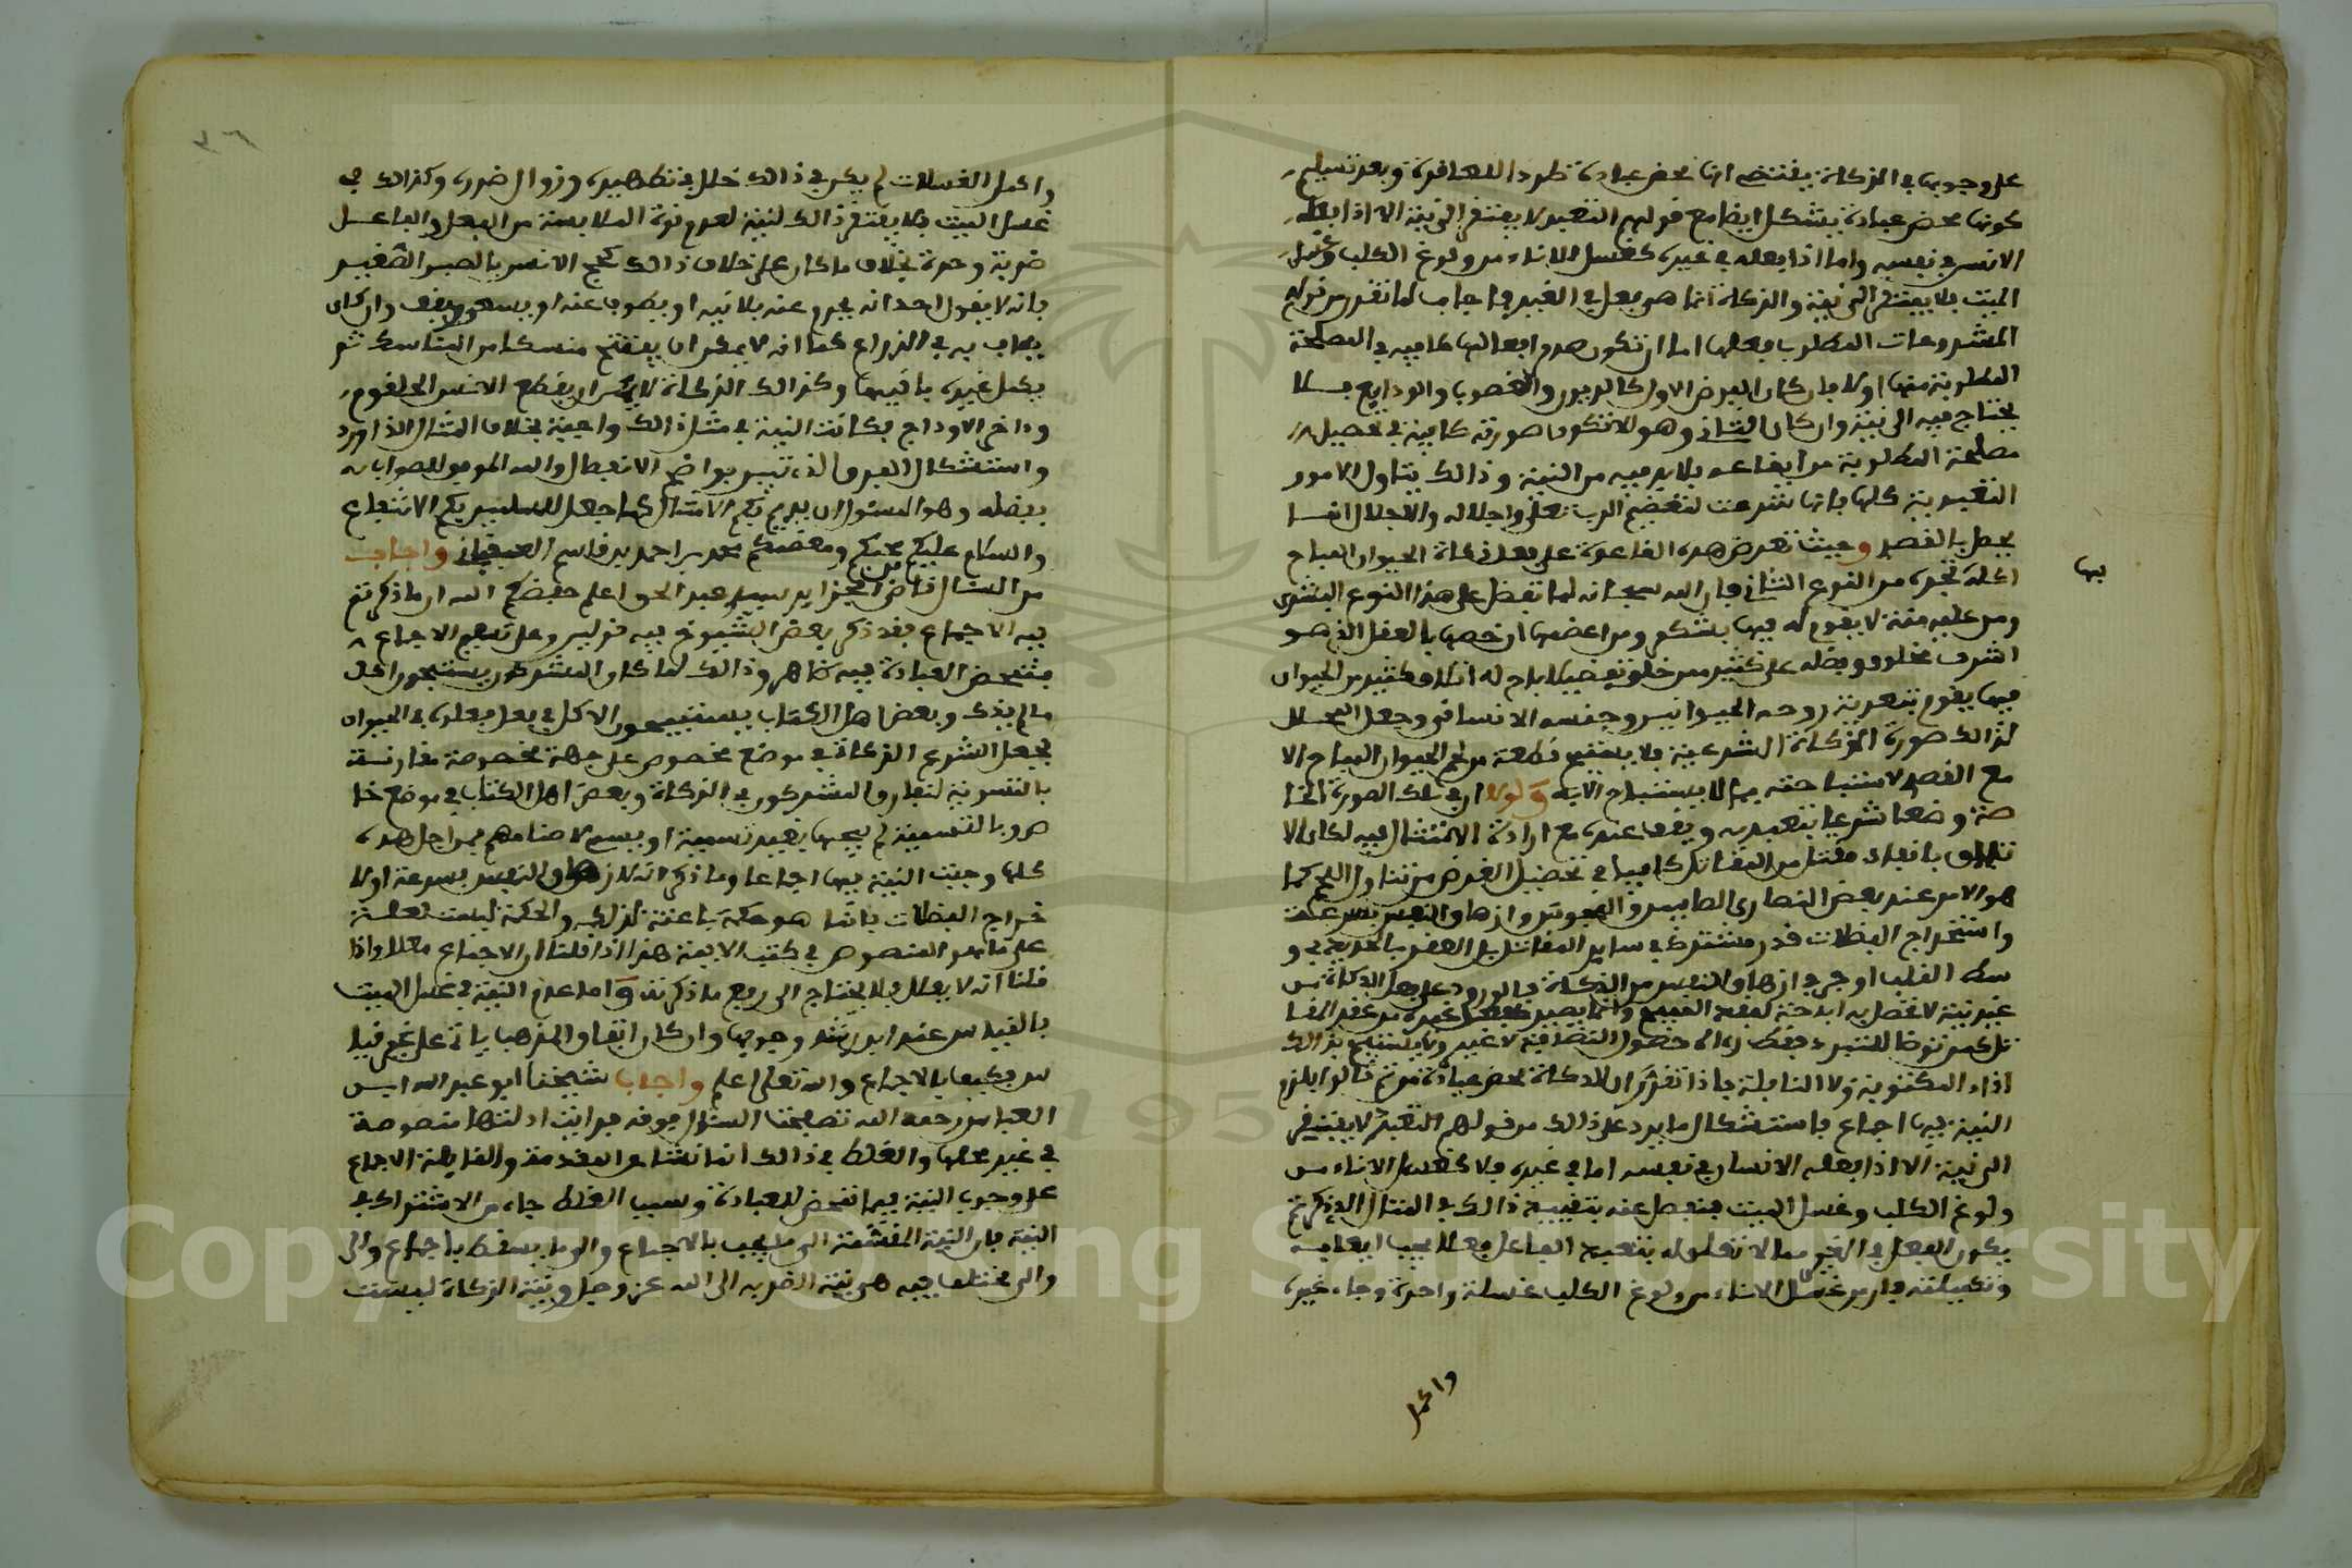 على وجوبها في الزكاة يقتضي انها محض عبادة طردا للقاعدة وبعد تسليم
كونها محض عبادة يشكل ايضا مع قولهم التعبد لا يفتقر الى نية الا اذا فعله
الانسان في نفسه واما اذا فعله في غيره كغسل الاناء من ولوغ الكلب وغسل
الميت فلا يفتقر الى نية والذكاة انما هي فعل في الغير فاجاب لما تقرر من قولهم
المشروعات المطلوب فعلها اما ان تكون صدور افعالها كافيه في المصلحة
المطلوبة منها او لا فان كان الغرض الاول كالديون والغصوب والودايع فلا
يحتاج فيه الى نية وان كان الثاني وهو ان لا تكون صورته كافية في تحصيل
مصلحة المطلوبة من ايقاعه فلا بد فيه من النية وذالك يتناول الامور
التعبدية كلها فانها شرعت لتعظيم الرب تعلى واجلاله والاجلال انما
يحصل بالقصد وحيث تعرض هذه القاعدة على فعل ذكاة الحيوان المباح
بها
اكله تجده من النوع الثاني فان الله سبحانه لما تفضل على هذا النوع البشري
ومن عليه منة لا يقوم له فيها بشكر ومن اعظمها ان خصها بالعقل الذي هو
اشرف مخلوق وفضله على كثير ممن خلق تفضيلا اباح له اتلاف كثير من الحيوان
فيما يقوم بتغذية روحه الحيوانيى وجنسه الانسانى وجعل المحلل
لذالك صورة الذكاة الشرعية فلا يستبيح قطعة من لحم الحيوان المباح الا
مع القصد لاستباحته بما لا يستباح الا به ولولا ان في تلك الصورة الخا
صة وضعا شرعيا يتعبد به ويقف عنده مع ارادة الامتثال فيه لكان الا
تلاف بانفاد مقتل من المقاتل كافيا في تحصيل الغرض من تناول اللحم كما
هو الامر عند بعض النصارى الصابين والمجوس وازهاق النفس بسرعة
واستخراج الفضلات قدر مشترك في ساير المقاتل بل العقر بالحديد في و
سط القلب اوحى في ازهاق النفس من الذكاة فالورود على محل الذكاة من
غير نية لا تحصل به اباحة
تل كمن توضا للتبرد فقط اذا له حصول النظافة لا غير ولا يستبيح بذالك
اداء المكتوبة ولا النافلة فاذا تقرر ان للذكاة محض عبادة من ثم قالوا يلزم
النية فيها اجماع فاستشكال ما يرد على ذالك من قولهم التعبد لا يفتقر
الى نية الا اذا فعله الانسان في نفسه اما في غيره فلا كغسل الاناء من
ولوغ الكلب وغسل الميت فينفصل عنه بتقييد ذالك في المثال الذي ذكرتم
يكون الفعل في الغير مما لا تعلق له بتعبد الفاعل فعلا يجب ايقاعه
وتكميلته فان من غسل الاناء من ولوغ الكلب غسلة واحدة وجاء غيره
واكمل
٣٦
واكمل الغسلات لم يكن في ذالك خلل في تطهيره وزوال ضرره وكذالك في
غسل الميت فلا يفتقر ذالك لنية لعدم قوة الملابسة من الفعل والفاعل
ضربة وحدة بخلاف ما كان على خلاف ذالك كحج الانسان بالصبي الصغير
فانه لا يقول احد انه يحرم عنه بلا نية او يطوف عنه او يسعى ويقف وان كان
يطاف به في الذراع كما انه لا يمكن ان يفتتح منسكا من المناسك ثم
يكمل غيره باقيها وكذالك الذكاة لا يمكن ان يقطع الانسان الحلقوم
واخر الاوداج فكانت النية في مثل ذالك واجبة بخلاف المثال الذي اورد
واستشكال الفرق الذي تبين بواضح الانفصال والله الموفق للصواب
بفضله وهو المسئول ان يديم بكم الامثال كما جعل للمسلمين بكم الانتفاع
والسلام عليكم محبكم ومعظمكم محمد بن احمد بن قاسم العقباني واجاب
من السئال قاض الجزاير سيدي عبد الحق اعلم حفظكم الله ان ما ذكرتم
فيه الاجماع فقد ذكر بعض الشيوخ فيه قولين وعلى تسليم الاجماع
فتمحض العبادة فيه ظاهر وذالك لما كان المشركون يستبيحون اكل
ما لم يذك وبعض اهل الكتاب يستبيحون الاكل في فعل فعلوه في الحيوان
فجعل الشرع الذكاة في موضع مخصوص على جهة مخصوصة مقارنة
بالتسوية لتفارق المشركون في الذكاة وبعض اهل الكتاب في موضع خا
ص وبالتسمية لم يبحها بغير تسمية او يسم لاصنامهم فمن اجل هذه
كلها وجبت النية فيها اجماعا وما ذكر انه لازهاق النفس بسرعة او لا
خراج الفضلات فانما هو حكمة باعثة لذلك والحكمة ليست بعلة
على ما هو المنصوص في كتب الايمة هذا اذا قلنا ان الاجماع معلل واذا
قلنا انه لا يعلل فلا يحتاج الى رفع ما ذكرته واما عدم النية في غسل الميت
بالقياس عند ابن رشد وجوبها وان كان اتفاق المذهب ياتي على نحو قيا
س فكيف بالاجماع والله تعلى اعلم واجاب شيخنا ابو عبد الله ابن
العباس رحمه الله تصفحنا السئوال فوقه فرايت ادلتها منصوصة
في غير محلها والغلط في ذالك انما نشا عن المقدمة والقايلة الاجماع
على وجوب النية فيما تمحض للعبادة وسبب الغلط جاء من الاشتراك في
النية فان النية المنقسمة الى ما يجب بالاجماع والى ما يسقط باجماع والى
والى مختلف فيه هي نية القربه الى الله عز وجل ونية الزكاة ليست